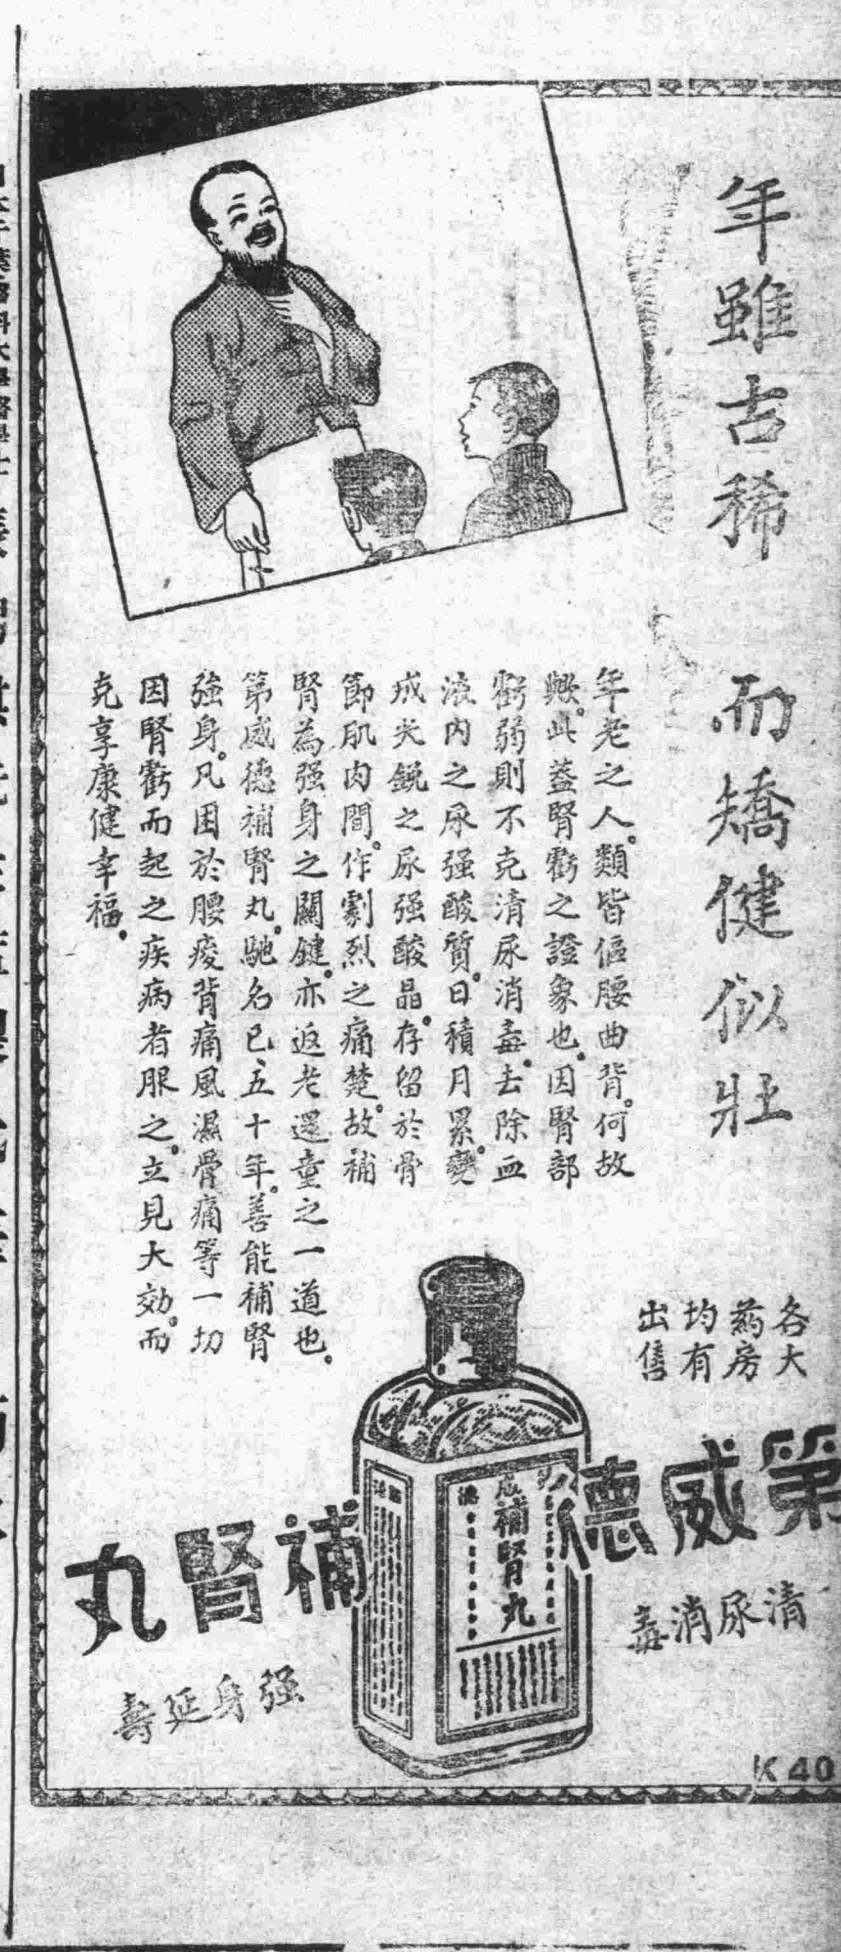 年雖古稀
而矯健似壯
年老之人。類皆傴腰曲背。何故
歟。此蓋腎虧之證象也。因腎部
虧弱則不克清尿消毒。去除血
液内之尿强酸質。日積月累。變
成尖鋭之尿强酸晶。存留於骨
節肌肉間。作劇烈之痛楚。故補
腎為强身之關鍵。亦返老還童之一道也。
第威德補腎丸。馳名已五十年。善能補腎
強身。凡困於腰痠背痛風濕骨痛等一切
因腎虧而起之疾病者服之。立見大効。而
克享康健幸福。
各大
藥房
均有
出售
第威德
補腎丸
清尿消毒
强身延壽
補腎丸
K 40